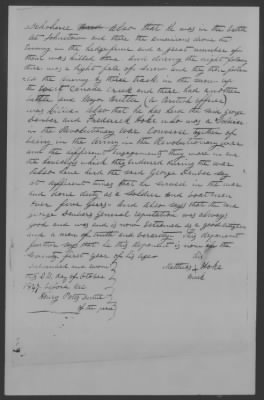 Schoharie also that he was in the battle
at Johnstown and there the enemies done been
turning in the hedge fence and a great number of
them was killed there. And during the night following
there was a light fall of snow and they then follow
ed the enemy by their track in the snow up
to West Canada Creek and there had another
battle and Major Butler (a British officer)
was killed. Also that he has heard the said George
and Frederick Hoke who was a Soldier
in the Revolutionary War Converse together of
being in the Army in the Revolutionary war
and the different Engagements they were in and
the hardships which they endured during the war
Also have heard the said George say
at different times that he served in the war
and done duty as a soldier and boat man
over five years. And also says that the said
George general reputation was always
good and was and is now esteemed as a good citizen
and a man of truth and veracity. This deponent
further says that he this deponent is now of the
Seventy first year of his age
his
Subscribed and sworn } Matthias x Hoke
this 22 day of October } mark
1847 before me
Henry Potts Justice
of the peace